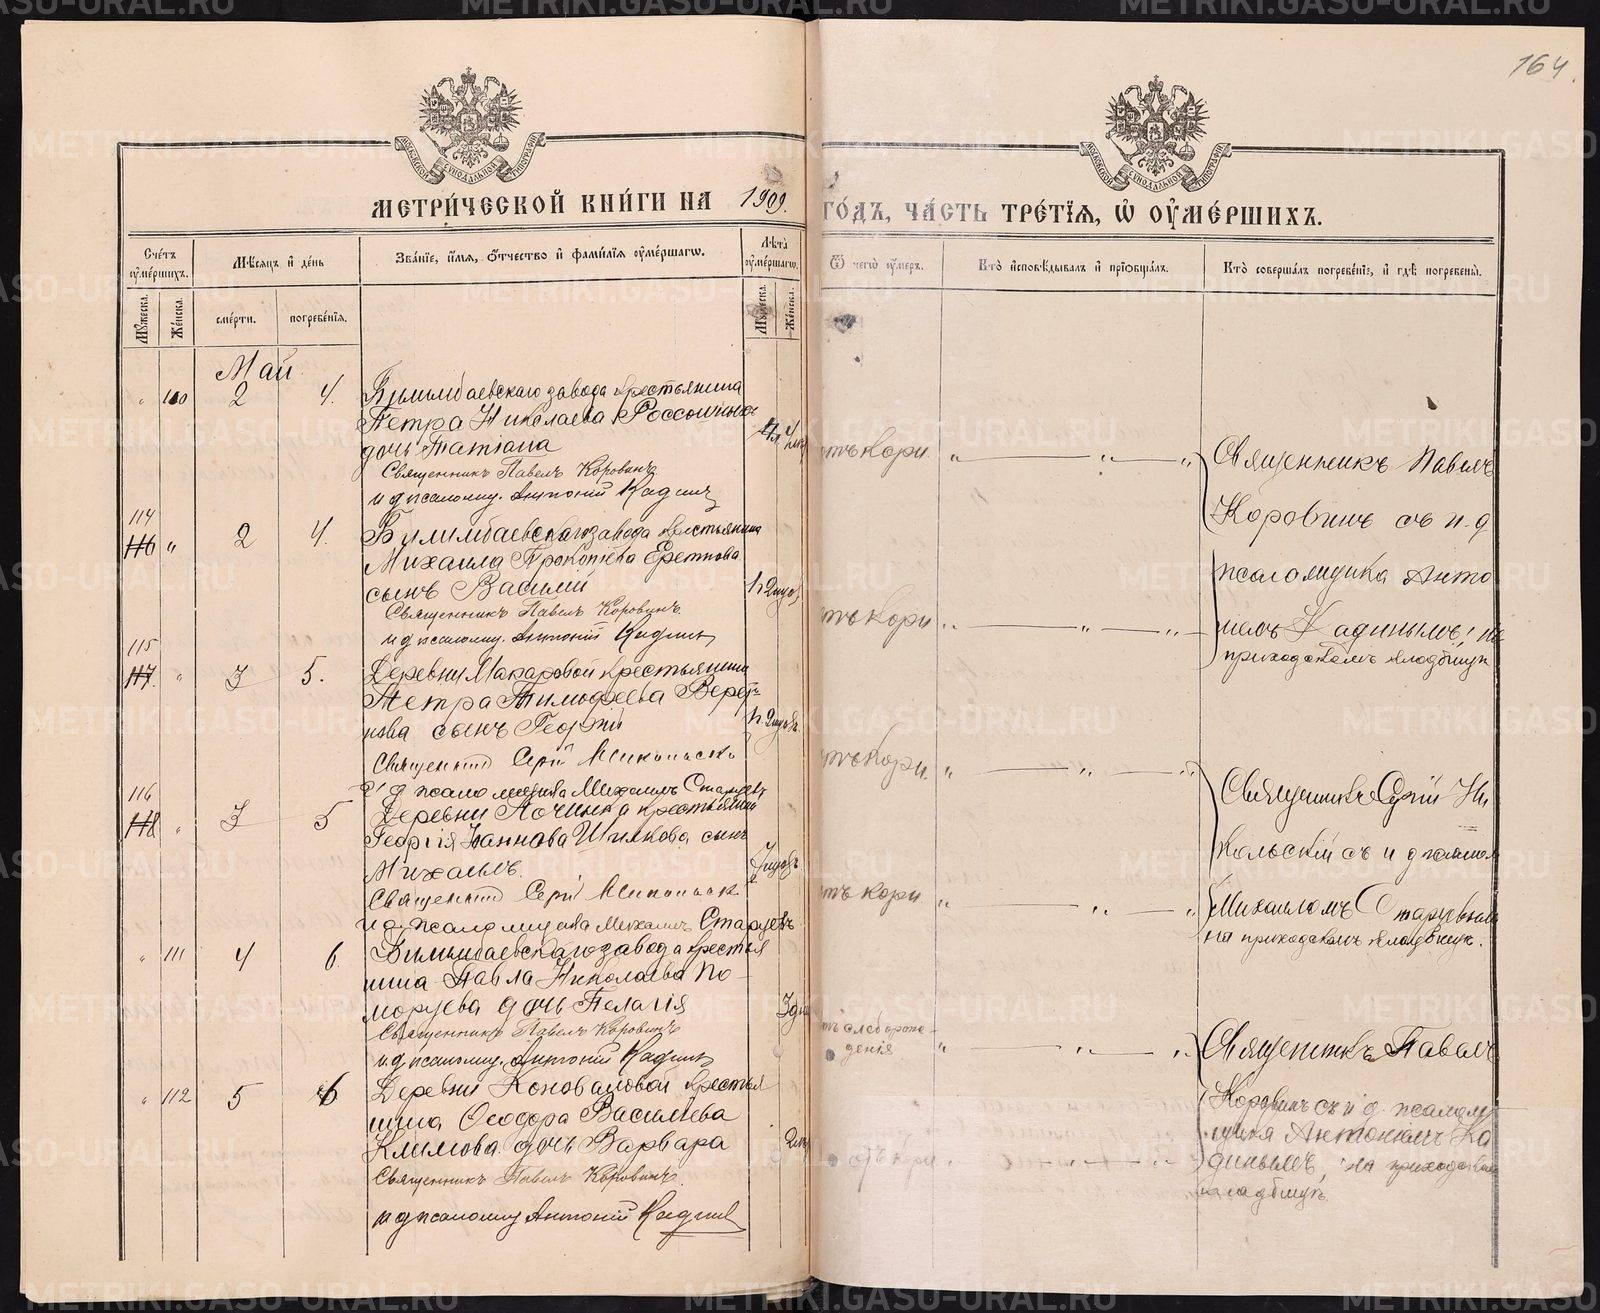 164.
МЕТРИ́ЧЕСКОЙ КНИ́ГИ НА 1909.
ГО́ДЪ, ЧА́СТЬ ТРЕ́ТЇѦ, Ѡ҆ ОУ҆МЕ́РШИХЪ.
Сче́тъ оу҆ме́ршихъ.
Мѣ́сѧцъ и҆ де́нь
Зва́нїе, и҆́мѧ, ѻ҆́тчество и҆ фами́лїѧ оу҆ме́ршагѡ.
Лѣ́та оу҆ме́ршагѡ.
Ѿ чегѡ̀ оу҆́меръ.
Кто̀ и҆сповѣ́дывалъ и҆ прїѡбща́лъ.
Кто̀ соверша́лъ погребе́нїе, и҆ гдѣ̀ погребены̀.
Мꙋ́жеска.
Же́нска.
сме́рти.
погребе́нїѧ.
Мꙋ́жеска.
Же́нска.
Май
" 110 2 4. Билимбаевскаго завода крестьянина
Петра Николаева
дочь Татіана
Священникъ Павелъ Коровинъ
и д псаломщ. Антоній Кадинъ
отъ кори
Священникъ Павелъ
Коровинъ съ и. д
псаломщика Анто
ніемъ Кадинымъ, на
приходскомъ кладбищѣ
114
116 " 2 4. Билимбаевскаго завода крестьянина
Михаила Прокопіева
сынъ Василій
Священникъ Павелъ Коровинъ
и д псаломщ. Антоній Кадинъ
отъ кори
115
117. " 3 5. Деревни Макаровой крестьянина
Петра Тимофеева
сынъ Георгій
Священникъ Сергій Никольскій
и д псаломщика Михаилъ Старцевъ
отъ кори
Священникъ Сергій Ни
кольскій съ и д псалом
Михаиломъ Старцевымъ
на приходскомъ кладбищѣ.
116
118 " 3 5 Деревни Починка крестьянина
Георгія Іаннова сынъ
Михаилъ.
Священникъ Сергій Никольскій
и д псаломщика Михаилъ Старцевъ
отъ кори
" 111 4 6. Билимбаевскаго завода крестья
нина Павла Николаева По
моруева дочь Пелагія
Священникъ Павелъ Коровинъ
и. д псаломщ. Антоній Кадинъ
3 дн
отъ слаборож-
денія
Священникъ Павелъ
Коровинъ съ и д. псалом
щика Антоніемъ Ка
динымъ на приходскомъ
кладбищѣ
" 112 5 6 Деревни Коноваловой крестья
нина Ѳеодора Василіева
Климова дочь Варвара
Священникъ Павелъ Коровинъ.
и д псаломщ Антоній Кадинъ
отъ кори
METRIKI.GASO-URAL.RU